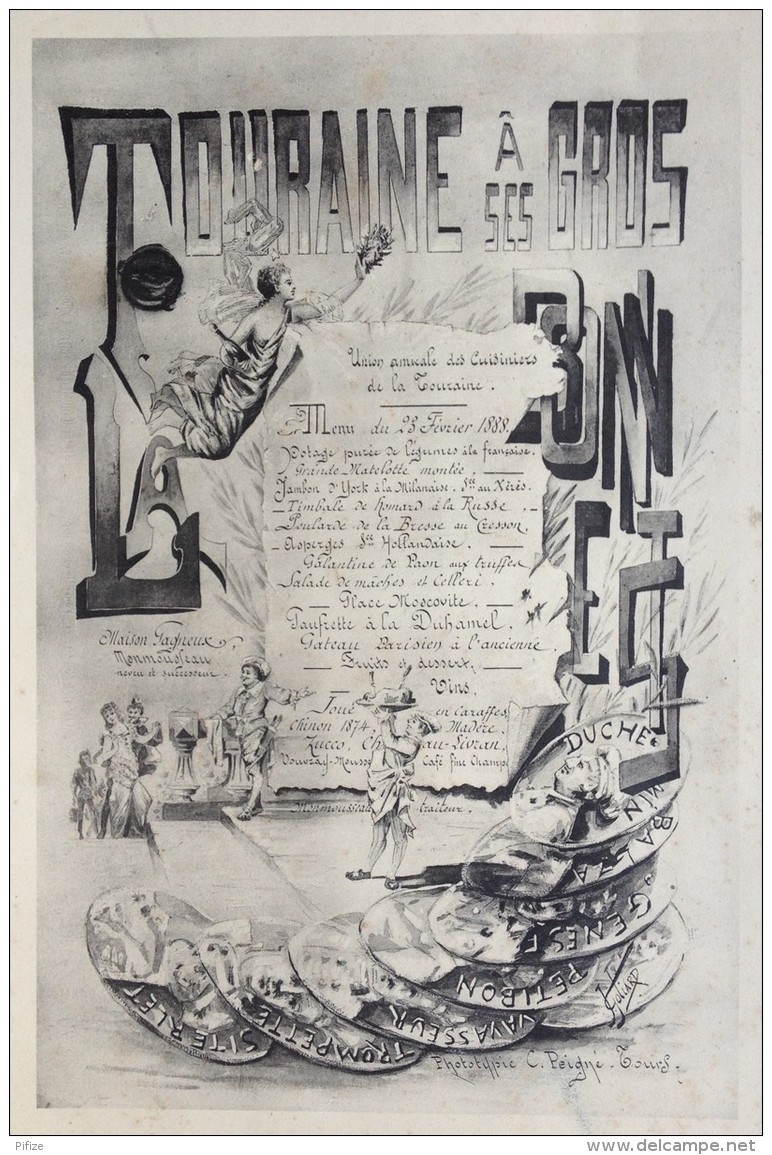 LA TOURAINE Â SES GROS BONNETS
Union amicale des Cuisiniers
de la Touraine.
Menu du 23 Février 1888.
Potage purée de légumes à la française.
Grande Matelotte montée.
Jambon d'York à la Milanaise. Sce au Xérès.
Timbale de homard à la Russe.
Poularde de la Bresse au Cresson.
Asperges Sce Hollandaise.
Galantine de Paon aux truffes
Salade de mâches et Celleri.
Glace Moscovite.
Gaufrette à la Duhamel.
Gateau Parisien à l'ancienne.
Fruits et dessert.
Vins.
Joué en Caraffes
Chinon 1874. Madère.
Zucco, Ch au-Livran.
Vouvray-Mousse Café fine Champ
Monmousseau traiteur.
Maison Gagneux.
Monmousseau
neveu et successeur.
DUCHEMIN
BALZA
GENESE
PETIBON
VAVASSEUR
TROMPETTE
SITERLET
Phototypie C. Peigné - Tours.
Pifize
www.delcampe.net